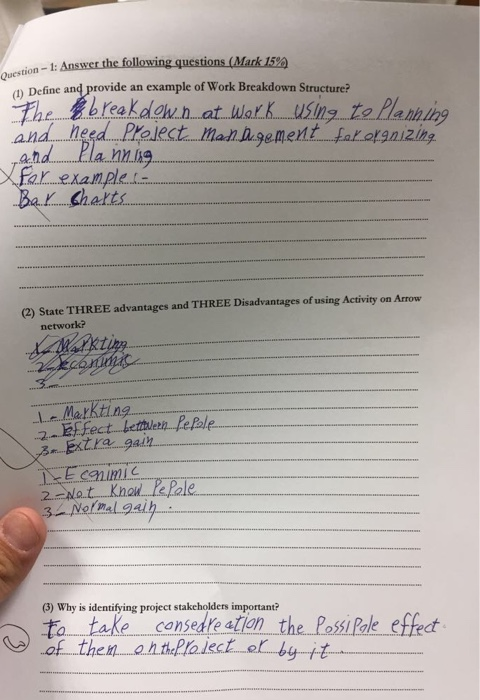 Question – 1: Answer the following questions (Mark 15%)
(1) Define and provide an example of Work Breakdown Structure?
The breakdown at work using to Planning
and need Project Management for orgnizing
and Planning
For example :-
Bar Charts
(2) State THREE advantages and THREE Disadvantages of using Activity on Arrow
network?
1- Markting
2- Econimic
3-
1- Markting
2- Effect between PePole
3- Extra gain
1- Econimic
2- Not Know PePole
3- Normal gain .
(3) Why is identifying project stakeholders important?
To take consedreation the PossiPole effect
of them on the Project or by it